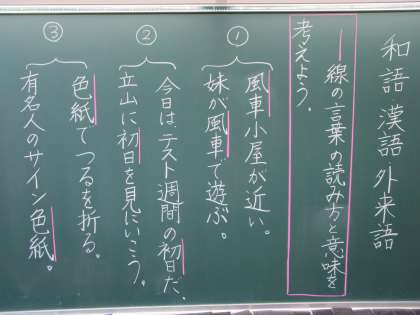 和語 漢語 外来語
――線の言葉の読み方と意味を
考えよう。
①
風車小屋が近い。
妹が風車で遊ぶ。
②
今日はテスト週間の初日だ。
立山に初日を見にいこう。
③
色紙でつるを折る。
有名人のサイン色紙。